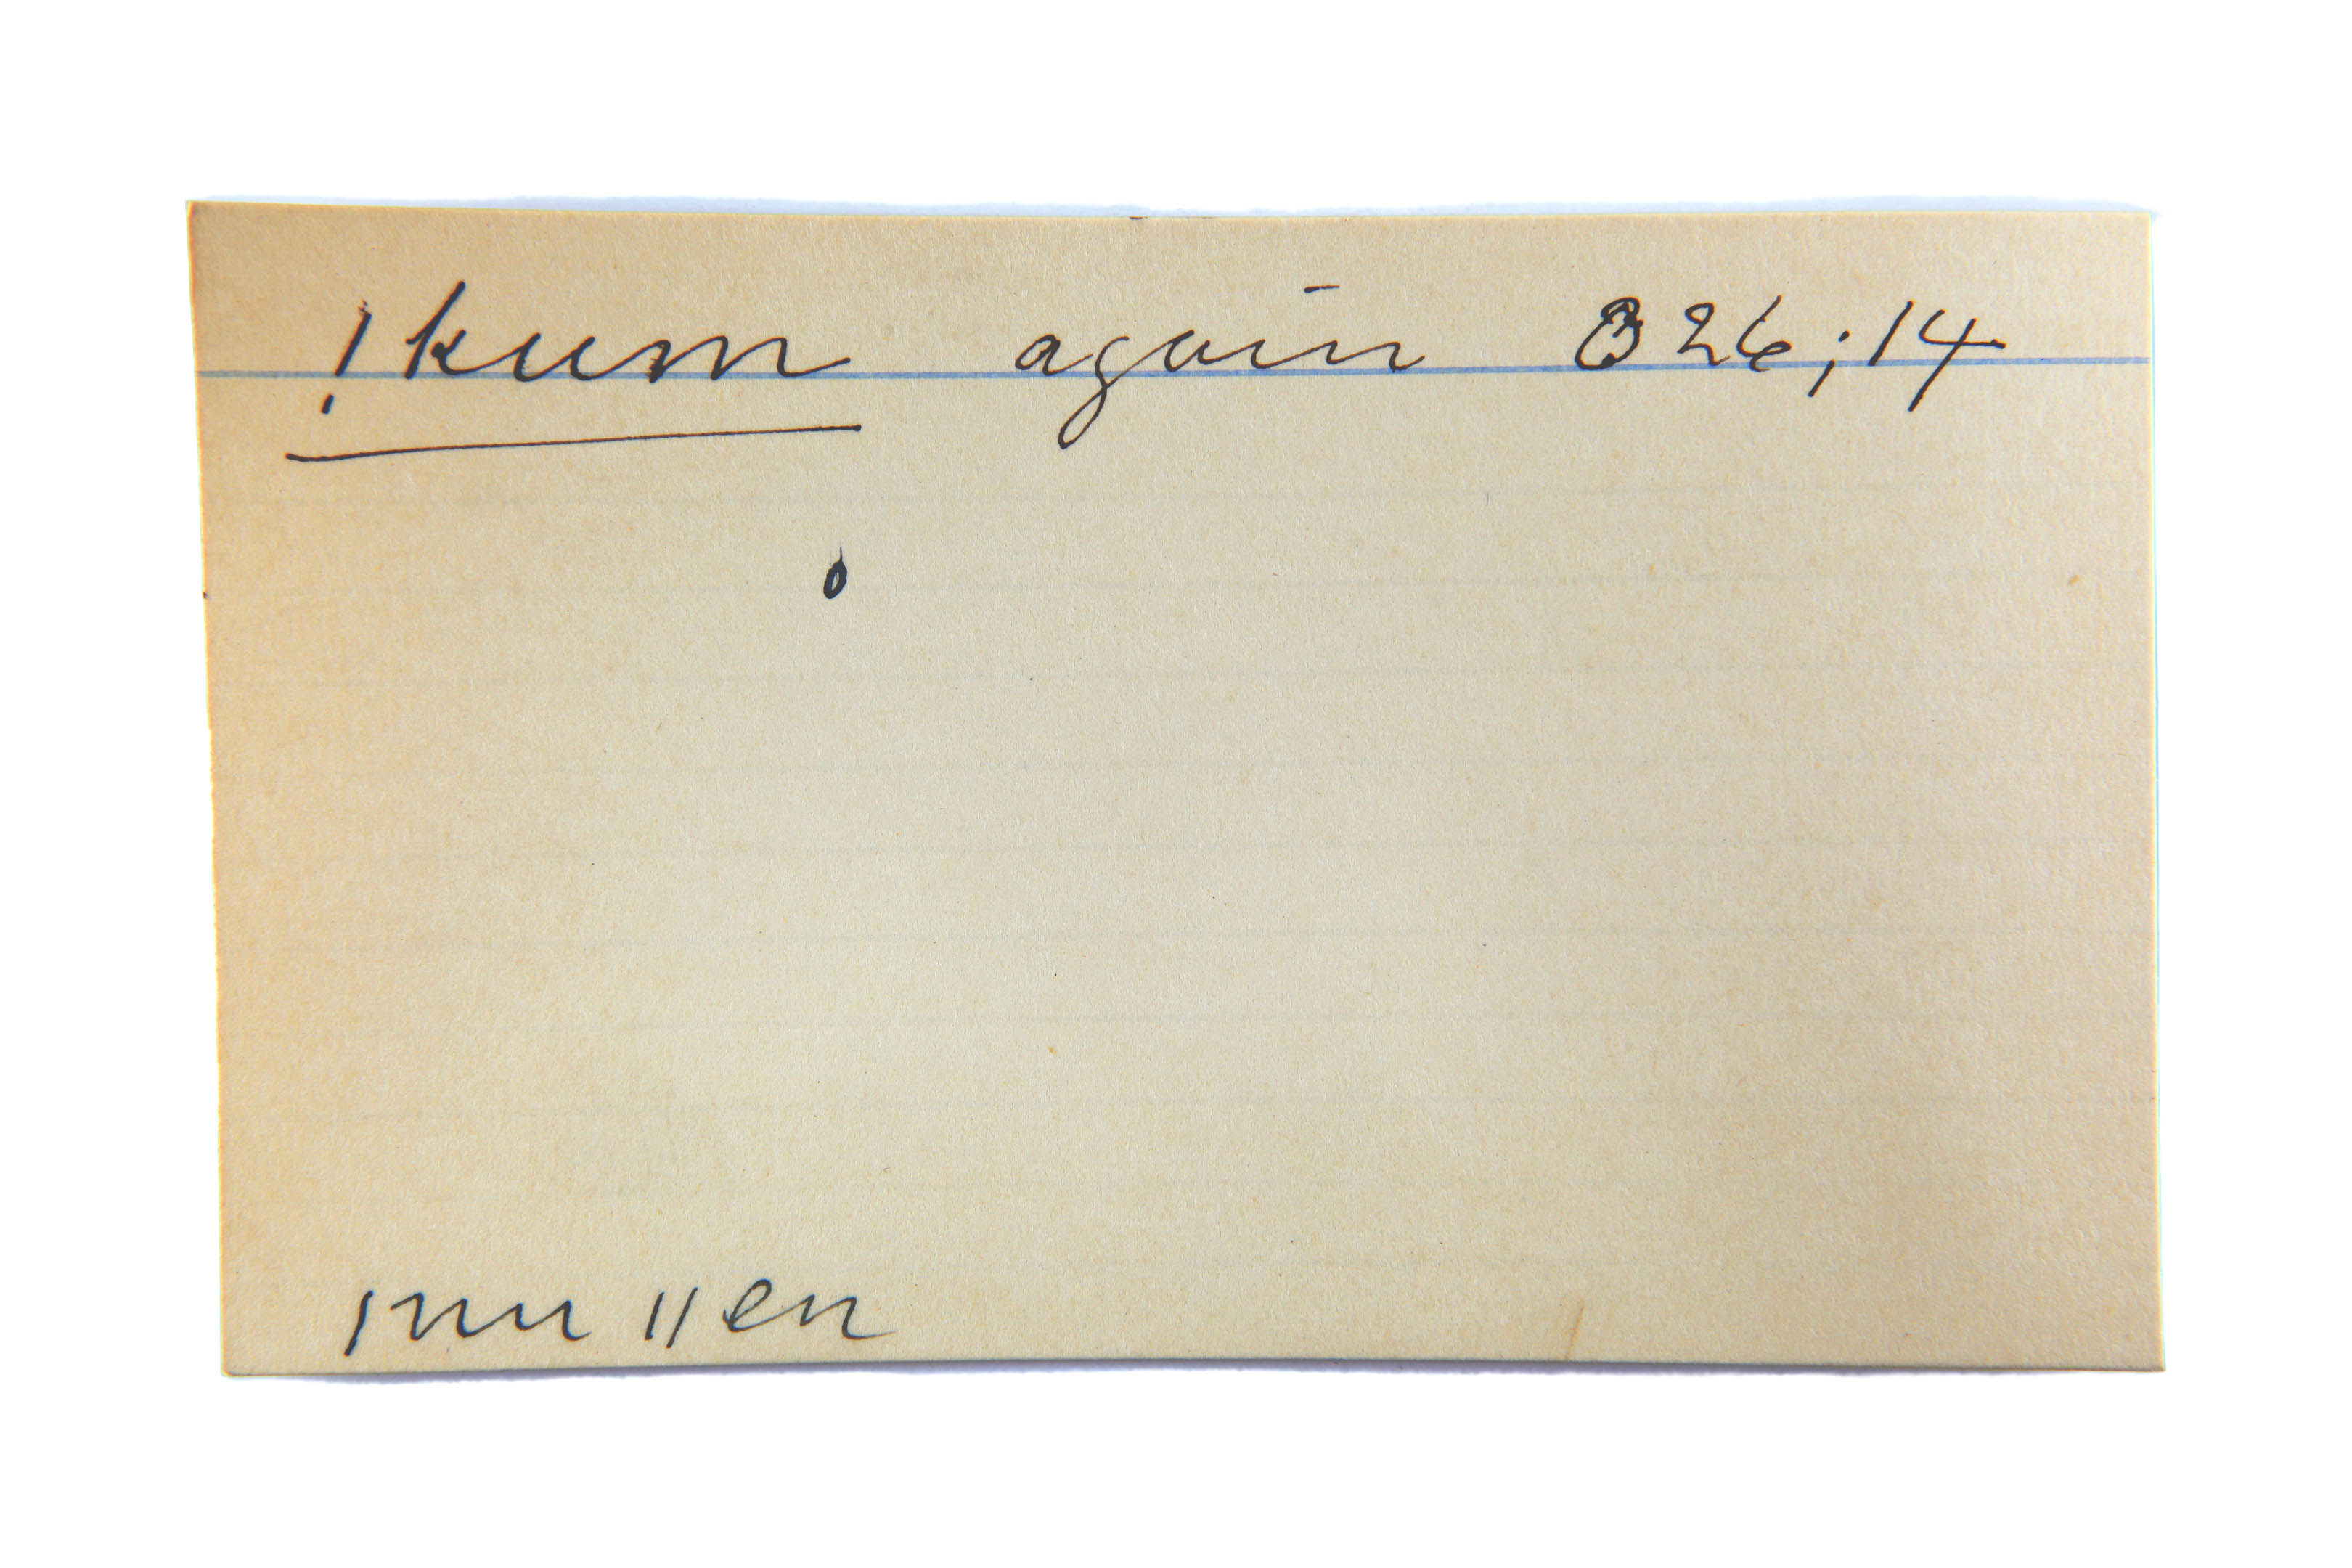 !kum again O26;14
ǀnu ǁen